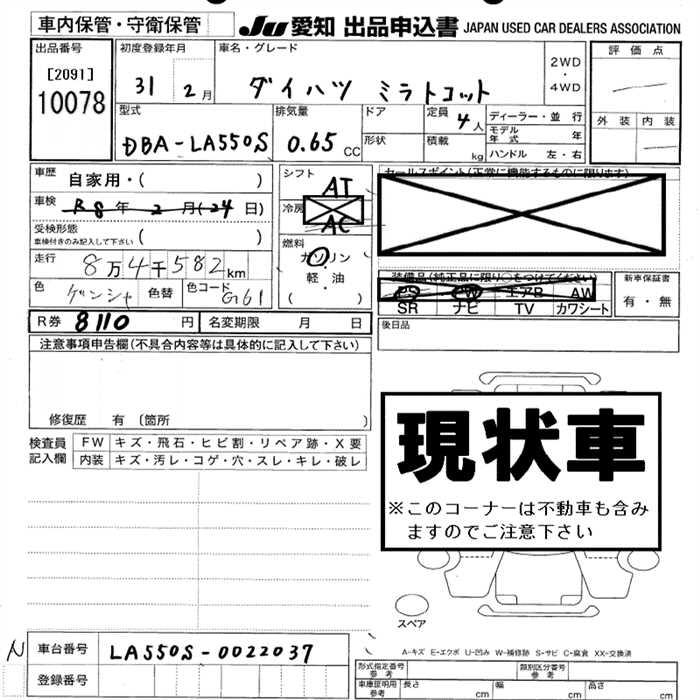 車内保管・守衛保管 JU 愛知 出品申込書 JAPAN USED CAR DEALERS ASSOCIATION
出品番号 初度登録年月 車名・グレード 2WD・4WD 評価点
[2091] 31年 2月 ダイハツ ミラトコット
10078
型式 排気量 ドア 定員 4人 ディーラー・並行 外装 内装
DBA-LA550S 0.65 CC 形状 積載 kg モデル年式 年
ハンドル 左・右
車歴 自家用・( ) シフト AT セールスポイント(正常に機能するものに限ります)
車検 R8年 2月(24日) 冷房 AC
受検形態 ( )
車検付きのみ記入して下さい
燃料 ガソリン
走行 8万4千582km 軽・油
( )
装備品(純正品に限り○をつけてください) 新車保証書
色 ゲンシャ 色替 色コード G61 PS PW エアB AW 有・無
SR ナビ TV カワシート
R券 8110円 名変期限 月 日 後日品
注意事項申告欄(不具合内容等は具体的に記入して下さい)
修復歴 有 〔箇所 〕
現状車
※このコーナーは不動車も含み
ますのでご注意下さい
検査員記入欄 FW キズ・飛石・ヒビ割・リペア跡・X要
内装 キズ・汚レ・コゲ・穴・スレ・キレ・破レ
スペア
A-キズ E-エクボ U-凹み W-補修跡 S-サビ C-腐食 XX-交換済
N 車台番号 LA550S-0022037
登録番号
形式指定番号 参考 類別区分番号 参考
車庫証明用 参考 長さ cm 幅 cm 高さ cm